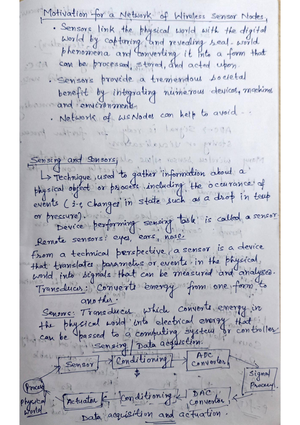 Motivation for a Network of Wireless Sensor Nodes,
• Sensors link the physical world with the digital
world by capturing and revealing real-world
phenomena and converting it into a form that
can be processed, stored, and acted upon.
• Sensors provide a tremendous societal
benefit by integrating numerous devices, machine
and environments.
• Network of WSNodes can help to avoid..
Sensing and Sensors,
↳ Technique used to gather information about a
physical object or process including the occurance of
events (i.e, changes in state such as a drop in temp
or pressure).
Device performing sensing task is called a sensor.
Remote sensors: eyes, ears, nose.
From a technical perspective, a sensor is a device
that translates parameters or events in the physical
world into signals that can be measured and analyses.
Transducer: Converts energy from one form to
another.
Sensors: Transducer which converts energy in
the physical world into electrical energy that
can be passed to a computing system or controller.
Sensing / Data acquisition.
Sensor → Conditioning → ADC Converter
Signal Process.
Physical World
Actuator Conditioning DAC Converter
Data acquisition and actuation.